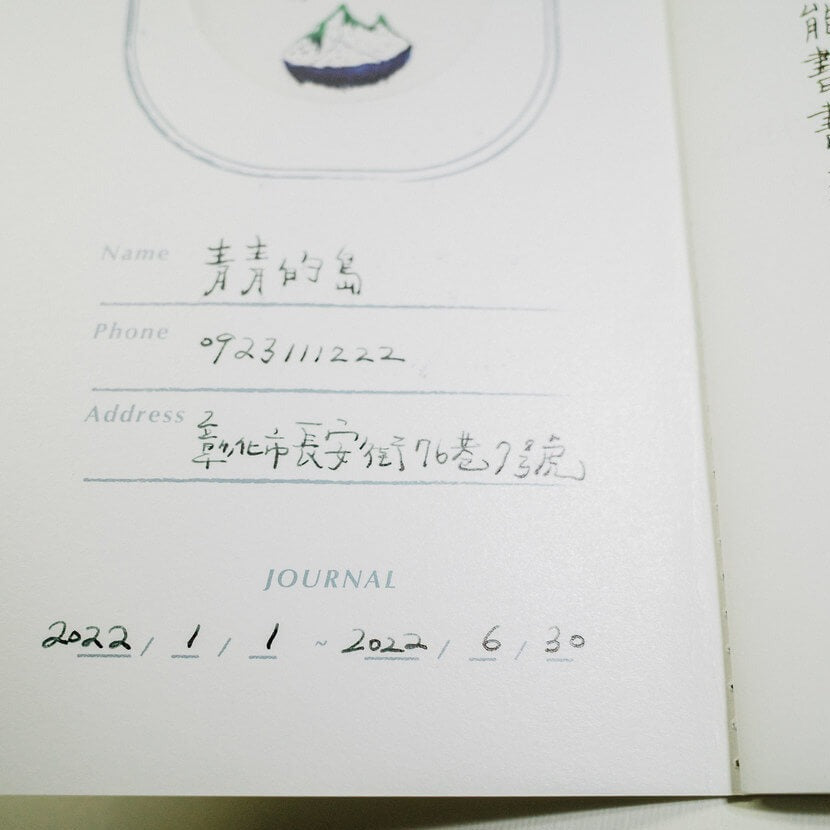 Name 青青的島
Phone 0923111222
Address 彰化市長安街76巷7號
JOURNAL
2022 / 1 / 1 ~ 2022 / 6 / 30
能書